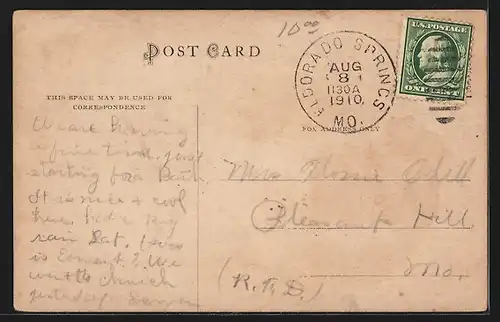 10 00
POST CARD
ELDORADO SPRINGS
AUG
8
1130A
1910
MO.
U.S. POSTAGE
ONE CENT
THIS SPACE MAY BE USED FOR
CORRESPONDENCE
FOR ADDRESS ONLY
We are having
a fine time, just
starting for a Bath
It is nice & cool
here. Had a big
rain Sat. How
is ? We
went to church
yesterday
Miss Odell
Pleasant Hill
Mo.
(R.F.D.)